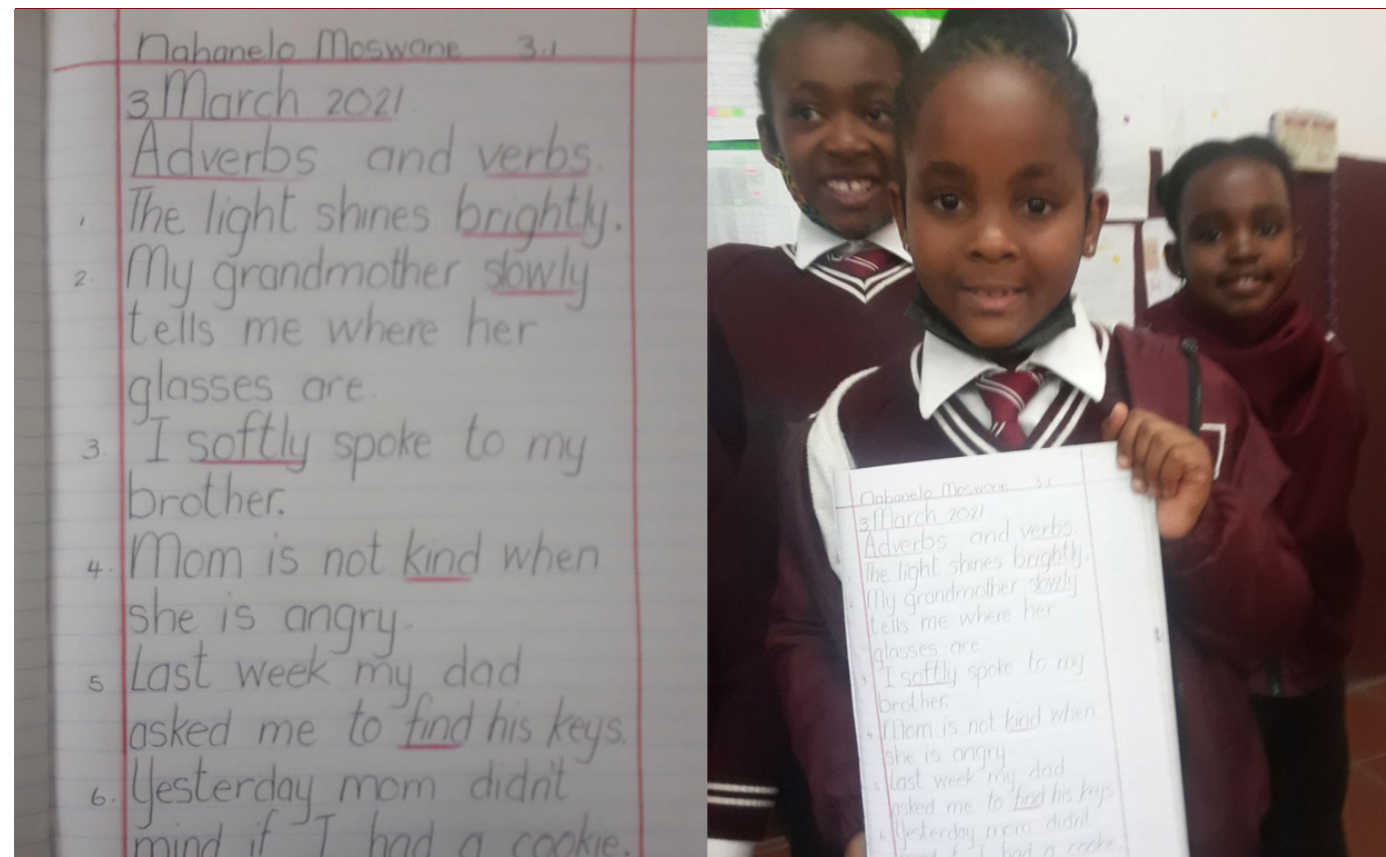 Nahanelo Moswane 3.1
3 March 2021
Adverbs and verbs.
1. The light shines brightly.
2. My grandmother slowly
tells me where her
glasses are.
3. I softly spoke to my
brother.
4. Mom is not kind when
she is angry.
5 Last week my dad
asked me to find his keys.
6. Yesterday mom didn't
mind if I had a cookie.
Nahanelo Moswane 3.1
3 March 2021
Adverbs and verbs.
The light shines brightly.
2 My grandmother slowly
tells me where her
glasses are
3 I softly spoke to my
brother.
4 Mom is not kind when
she is angry
5 Last week my dad
asked me to find his keys
6 Yesterday mom didn't
mind if I had a cookie.